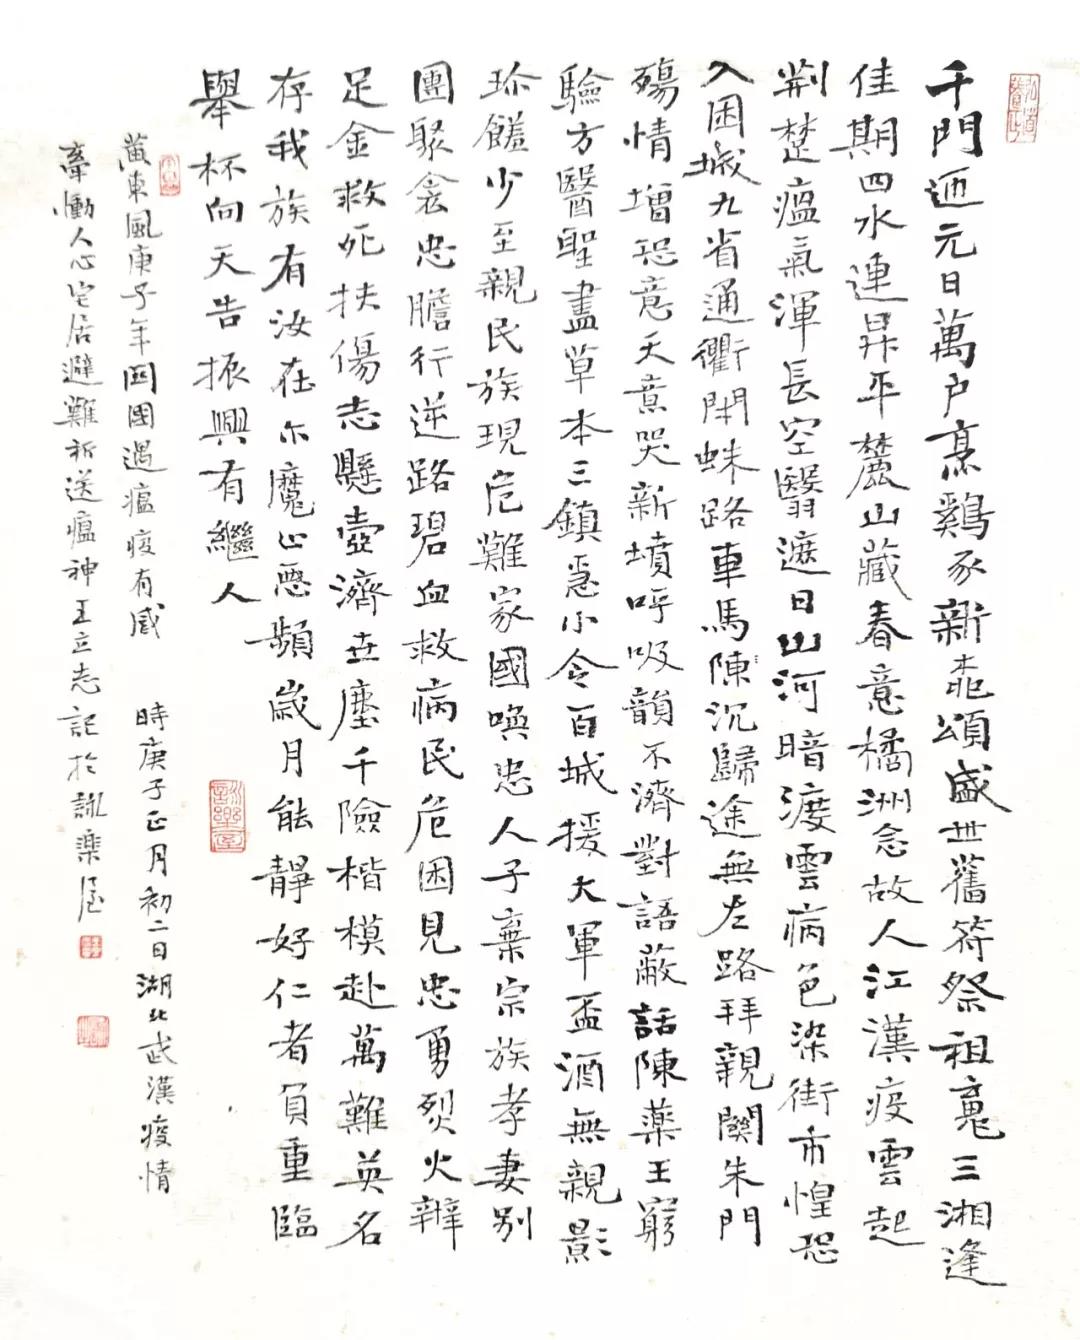 千門迊元日萬户烹鷄豕新桃頌盛世舊符祭祖䰟三湘逢
佳期四水連昇平麓山藏春意橘洲念故人江漢疫雲起
荆楚瘟氣渾長空翳遮日山河暗渡雲病色染街市惶恐
入困城九省通衢閉蛛路車馬陳沉歸途無左路拜親關朱門
殤情增恐意天意哭新墳呼吸韻不濟對語蔽話陳藥王窮
驗方醫聖盡草本三鎮急小令百城援大軍盃酒無親影
珍饈少至親民族現危難家國喚忠人子棄宗族孝妻别
團聚衾忠膽行逆路碧血救病民危困見忠勇烈火辨
足金救死扶傷志懸壺濟世塵千險楷模赴萬難英名
存我族有汝在尔魔心惡頻歲月能靜好仁者負重臨
舉杯向天告振興有繼人
黄東風庚子年囸國遇瘟疫有感 時庚子正月初二日湖北武漢疫情
牽慟人心宅居避難祈送瘟神王立志記於詠樂居